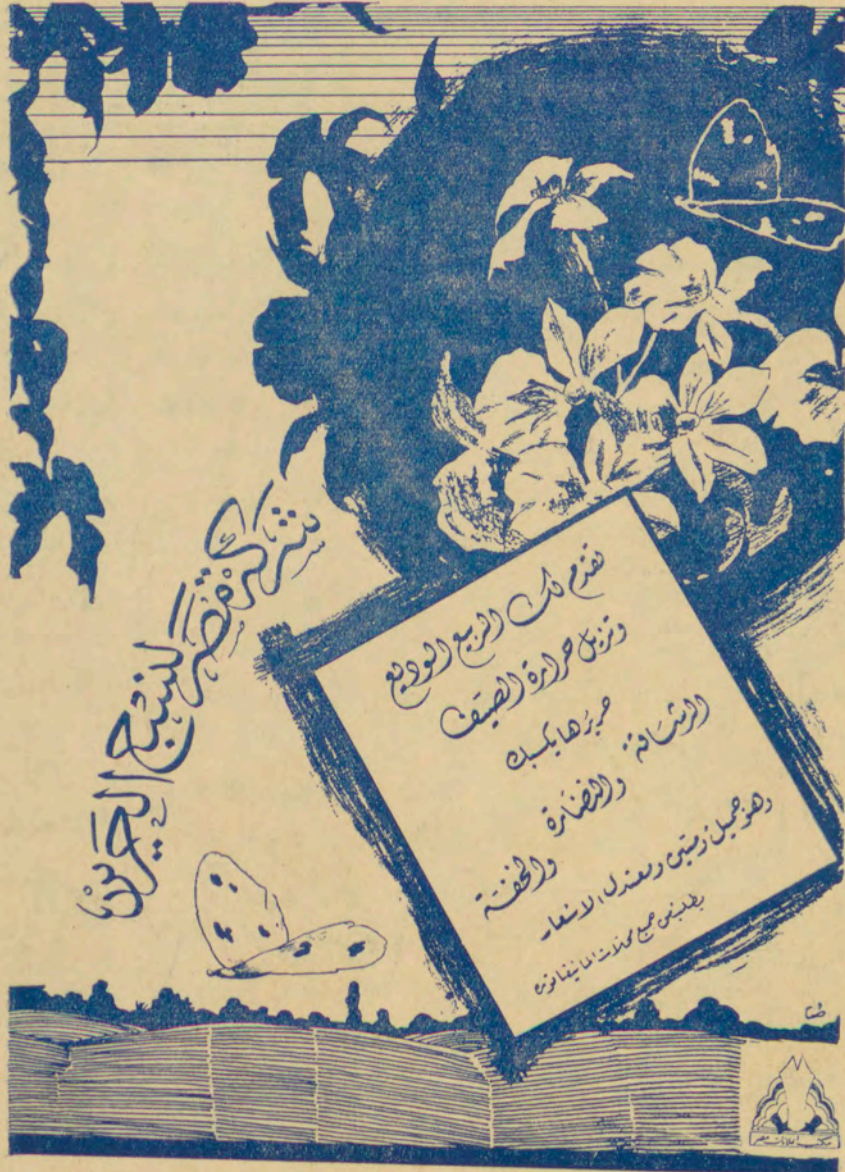 شركة مصر لنسج الحرير
تقدم لك الربيع الوديع
وتزيل حرارة الصيف
حريرها يكسبك
الرشاقة والنضارة والخفة
وهو جميل ومتين ومعتدل الاسعار
يطلب من جميع محلات المانيفاتوره
مكتب اعلانات مصر